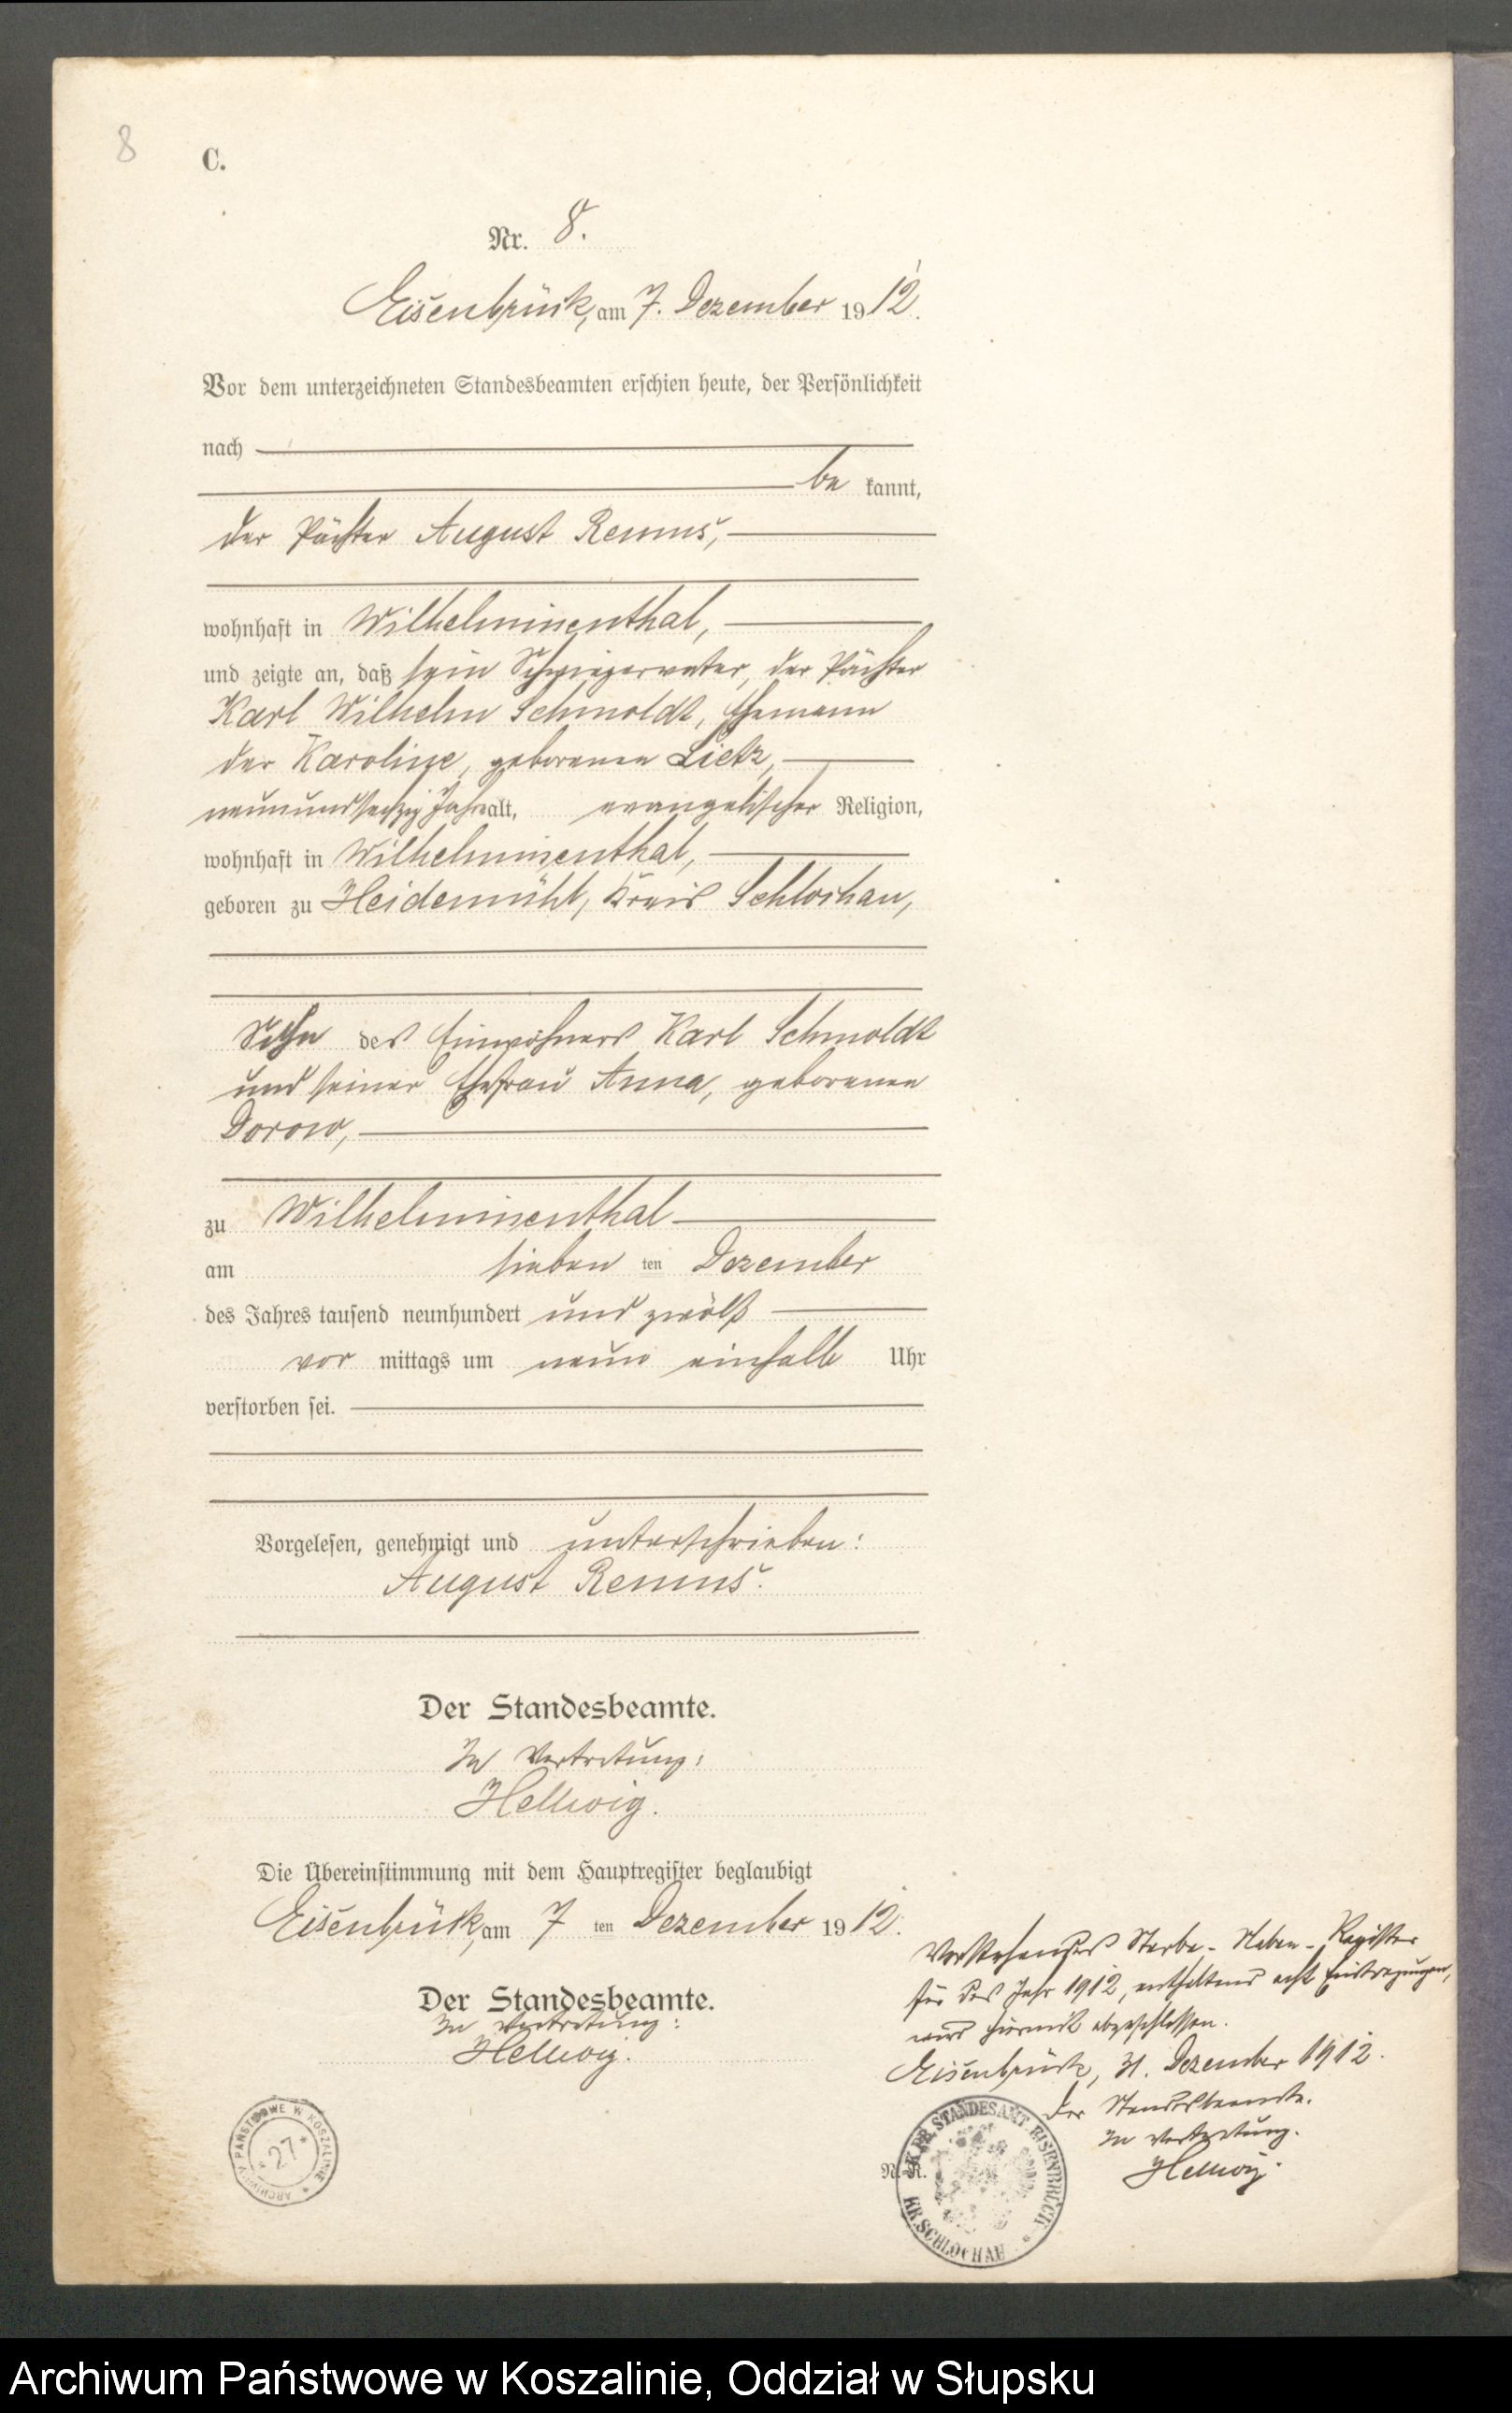 8
C.
Nr. 8.
Eisenbrück, am 7. Dezember 1912.
Vor dem unterzeichneten Standesbeamten erschien heute, der Persönlichkeit
nach
be kannt,
der Pächter August Remus,
wohnhaft in Wilhelminenthal,
und zeigte an, daß sein Schwiegervater, der Pächter
Karl Wilhelm Schmoldt, Ehemann
der Karoline, geborenen Lietz,
neunundsechzig Jahre alt, evangelischer Religion,
wohnhaft in Wilhelminenthal,
geboren zu Heidemühl, Kreis Schlochau,
Sohn des Einwohners Karl Schmoldt
und seiner Ehefrau Anna, geborenen
Dorow,
zu Wilhelminenthal
am sieben ten Dezember
des Jahres tausend neunhundert und zwölf
vor mittags um neun einhalb Uhr
verstorben sei.
Vorgelesen, genehmigt und unterschrieben:
August Remus.
Der Standesbeamte.
In Vertretung:
Hellwig.
Die Übereinstimmung mit dem Hauptregister beglaubigt
Eisenbrück, am 7 ten Dezember 1912.
Der Standesbeamte.
In Vertretung:
Hellwig.
Vorstehendes Sterbe-Neben-Register
für das Jahr 1912, enthaltend acht Eintragungen,
wird hiermit abgeschlossen.
Eisenbrück, 31. Dezember 1912.
Der Standesbeamte.
In Vertretung.
Hellwig.
N.-R.
K. PR. STANDESAMT EISENBRÜCK
KR. SCHLOCHAU
ARCHIWUM PAŃSTWOWE W KOSZALINIE
* 27 *
Archiwum Państwowe w Koszalinie, Oddział w Słupsku